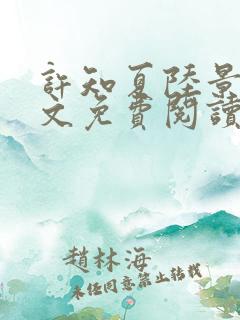 許知夏陸景
文免費閱讀
趙林海
未經同意禁止轉載